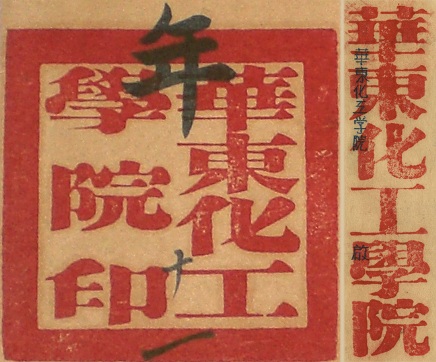 華東化工
學院印
年
十
一
華東化工學院
華東化工学院
啟